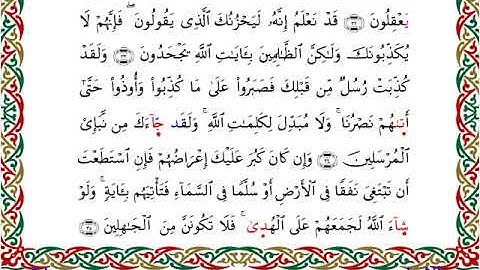 يَعْقِلُونَ ٣٢ قَدْ نَعْلَمُ إِنَّهُۥ لَيَحْزُنُكَ ٱلَّذِى يَقُولُونَ ۖ فَإِنَّهُمْ لَا
يُكَذِّبُونَكَ وَلَـٰكِنَّ ٱلظَّـٰلِمِينَ بِـَٔايَـٰتِ ٱللَّهِ يَجْحَدُونَ ٣٣ وَلَقَدْ
كُذِّبَتْ رُسُلٌ مِّن قَبْلِكَ فَصَبَرُوا۟ عَلَىٰ مَا كُذِّبُوا۟ وَأُوذُوا۟ حَتَّىٰٓ
أَتَىٰهُمْ نَصْرُنَا ۚ وَلَا مُبَدِّلَ لِكَلِمَـٰتِ ٱللَّهِ ۚ وَلَقَدْ جَآءَكَ مِن نَّبَإِى۟
ٱلْمُرْسَلِينَ ٣٤ وَإِن كَانَ كَبُرَ عَلَيْكَ إِعْرَاضُهُمْ فَإِنِ ٱسْتَطَعْتَ
أَن تَبْتَغِىَ نَفَقًا فِى ٱلْأَرْضِ أَوْ سُلَّمًا فِى ٱلسَّمَآءِ فَتَأْتِيَهُم بِـَٔايَةٍ ۚ وَلَوْ
شَآءَ ٱللَّهُ لَجَمَعَهُمْ عَلَى ٱلْهُدَىٰ ۚ فَلَا تَكُونَنَّ مِنَ ٱلْجَـٰهِلِينَ ٣٥